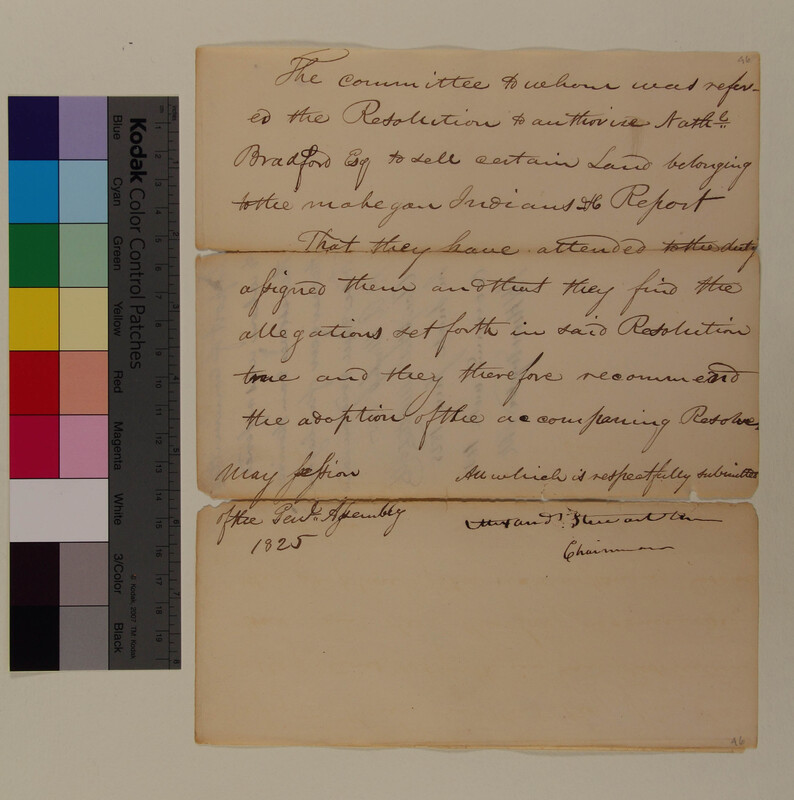 46
The committee to whom was refer-
ed the Resolution to authorize Nathl
Bradford Esq to sell certain Land belonging
to the mohegan Indians &c Report
That they have attended to the duty
assigned them and that they find the
allegations set forth in said Resolution
true and they therefore recommend
the adoption of the accompaning Resolve.
May session
All which is respectfully submitted
of the Genl. Assembly
1825
Chairman
46
Kodak Color Control Patches
Blue
Cyan
Green
Yellow
Red
Magenta
White
3/Color
Black
© Kodak, 2007 TM: Kodak
cm 1 2 3 4 5 6 7 8 9 10 11 12 13 14 15 16 17 18 19
inches 1 2 3 4 5 6 7 8